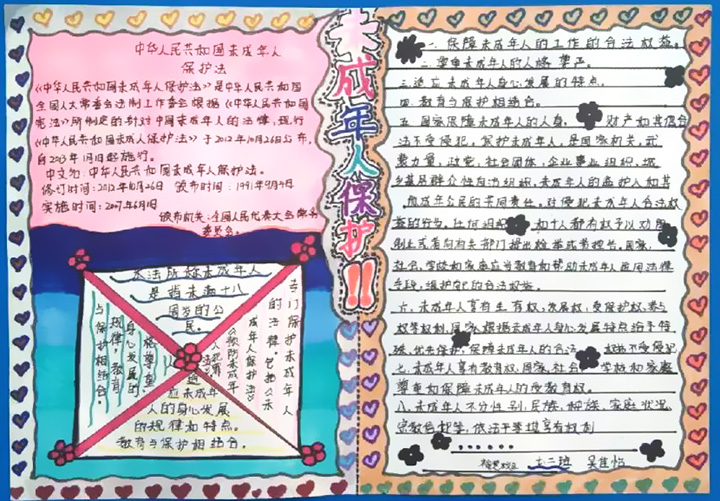 未成年人保护!!
中华人民共和国未成年人
保护法
《中华人民共和国未成年人保护法》是中华人民共和国
全国人大常委会法制工作委会根据《中华人民共和国
宪法》所制定的针对中国未成年人的法律，现行
《中华人民共和国未成人保护法》于2012年10月26日公布，
自2013年1月1日起施行。
中文名：中华人民共和国未成年人保护法。
修订时间：2012年10月26日 颁布时间：1991年9月4日
实施时间：2007年6月1日
颁布机关：全国人民代表大会常务
委员会。
本法所称未成年人
是指未满十八
周岁的公
民。
专门保护未成年人
的法律，包括《未
成年人保护法》
《预防未成年
人犯罪
应未成年
人的身心发展
的规律和特点。
教育与保护相结合。
格尊严
身心发展的
规律，教育
与保护相结合。
一、保障未成年人的工作的合法权益。
二、尊重未成年人的人格尊严。
三、适应未成年人身心发展的特点。
四、教育与保护相结合。
五、国家保障未成年人的人身、财产和其他合
法不受侵犯，保护未成年人，是国家机关，武
装力量，政党，社会团体，企业事业组织，城
乡基层群众性自治组织，未成年人的监护人和其
他成年公民的共同责任。对侵犯未成年人合法权
益的行为，任何组织和个人都有权予以劝阻
制止或者向有关部门提出检举或者控告。国家、
社会、学校和家庭应当教育和帮助未成年人运用法律
手段，维护他们的合法权益。
六、未成年人享有生存权，发展权，受保护权，参与
权等权利，国家根据未成年人身心发展特点给予特
殊，优先保护，保障未成年人的合法权益不受侵犯
七、未成年人享有教育权，国家，社会，学校和家庭
尊重和保障未成年人的受教育权。
八、未成年人不分性别，民族，种族，家庭状况，
宗教信仰等，依法平等地享有权利
……
七二班 吴佳怡